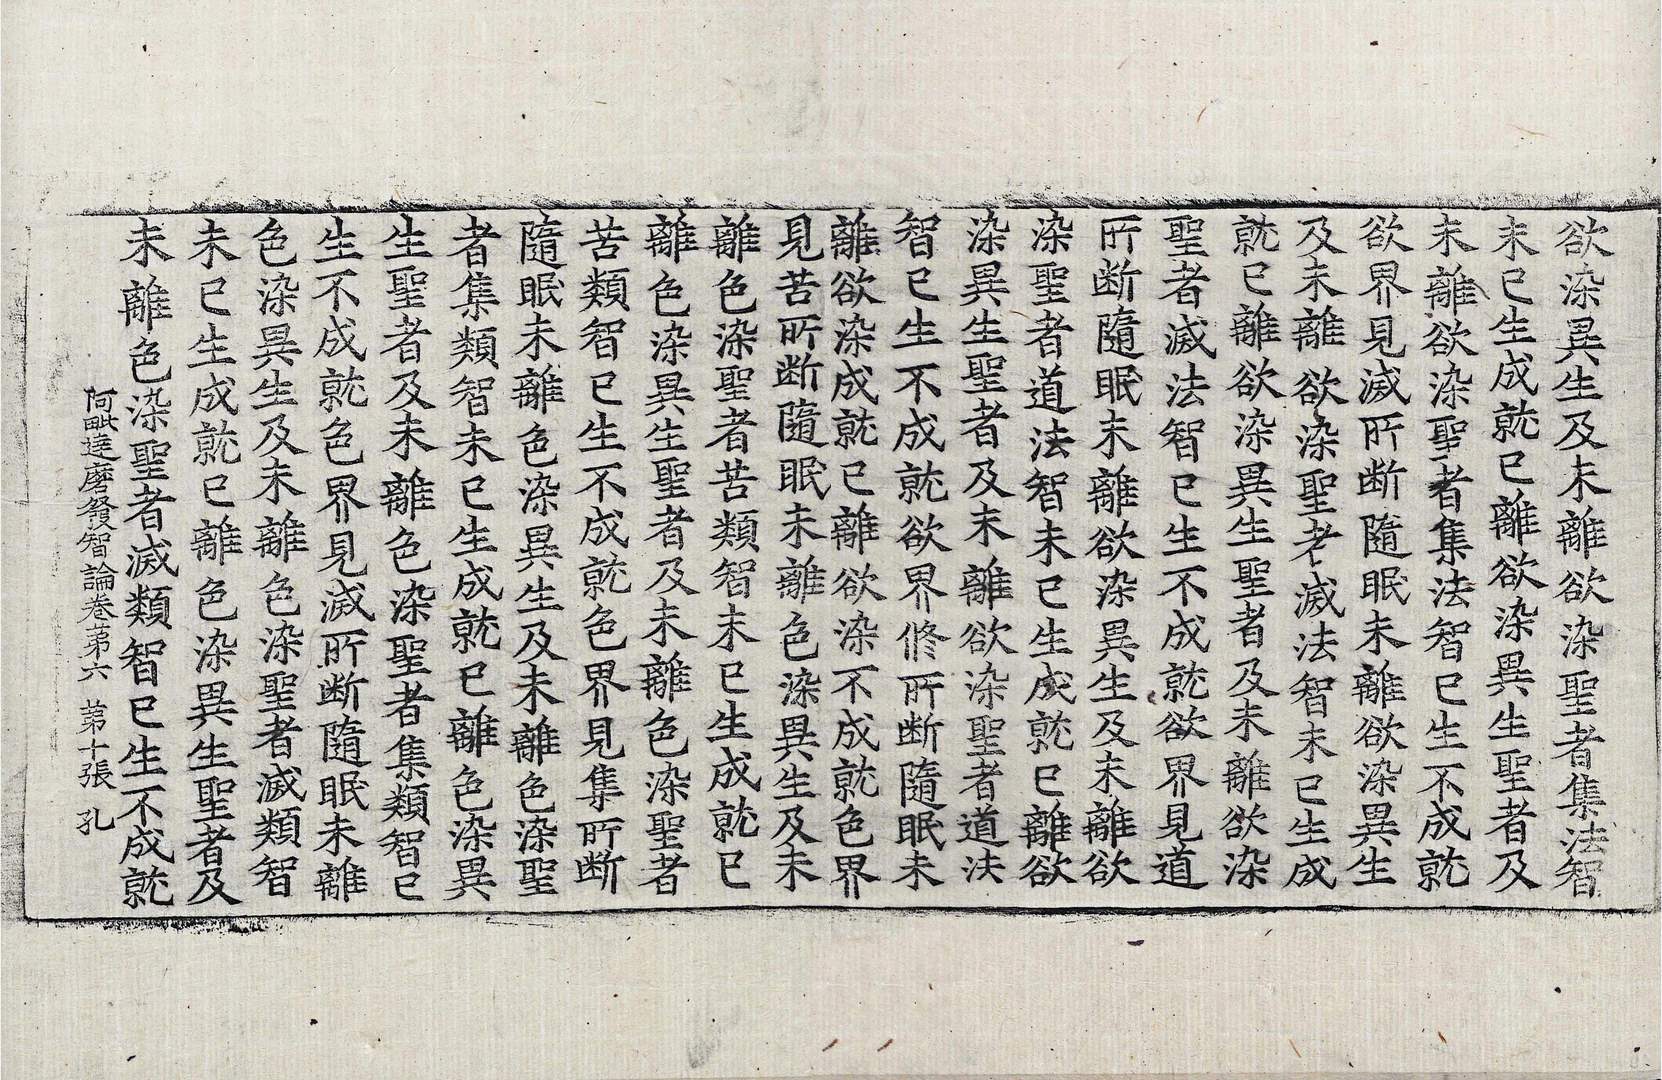 欲染異生及未離欲染聖者集法智
未已生成就已離欲染異生聖者及
未離欲染聖者集法智已生不成就
欲界見滅所断隨眠未離欲染異生
及未離欲染聖者滅法智未已生成
就已離欲染異生聖者及未離欲染
聖者滅法智已生不成就欲界見道
所断隨眠未離欲染異生及未離欲
染聖者道法智未已生成就已離欲
染異生聖者及未離欲染聖者道法
智已生不成就欲界修所断隨眠未
離欲染成就已離欲染不成就色界
見苦所断隨眠未離色染異生及未
離色染聖者苦類智未已生成就已
離色染異生聖者及未離色染聖者
苦類智已生不成就色界見集所断
隨眠未離色染異生及未離色染聖
者集類智未已生成就已離色染異
生聖者及未離色染聖者集類智已
生不成就色界見滅所断隨眠未離
色染異生及未離色染聖者滅類智
未已生成就已離色染異生聖者及
未離色染聖者滅類智已生不成就
阿毗達磨發智論卷第六　第十張　孔